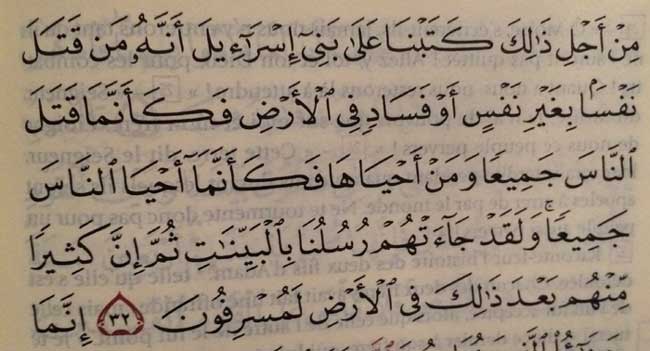 مِنْ أَجْلِ ذَٰلِكَ كَتَبْنَا عَلَىٰ بَنِىٓ إِسْرَٰٓءِيلَ أَنَّهُۥ مَن قَتَلَ
نَفْسًۢا بِغَيْرِ نَفْسٍ أَوْ فَسَادٍ فِى ٱلْأَرْضِ فَكَأَنَّمَا قَتَلَ
ٱلنَّاسَ جَمِيعًا وَمَنْ أَحْيَاهَا فَكَأَنَّمَآ أَحْيَا ٱلنَّاسَ
جَمِيعًا ۚ وَلَقَدْ جَآءَتْهُمْ رُسُلُنَا بِٱلْبَيِّنَٰتِ ثُمَّ إِنَّ كَثِيرًا
مِّنْهُم بَعْدَ ذَٰلِكَ فِى ٱلْأَرْضِ لَمُسْرِفُونَ ٣٢ إِنَّمَا